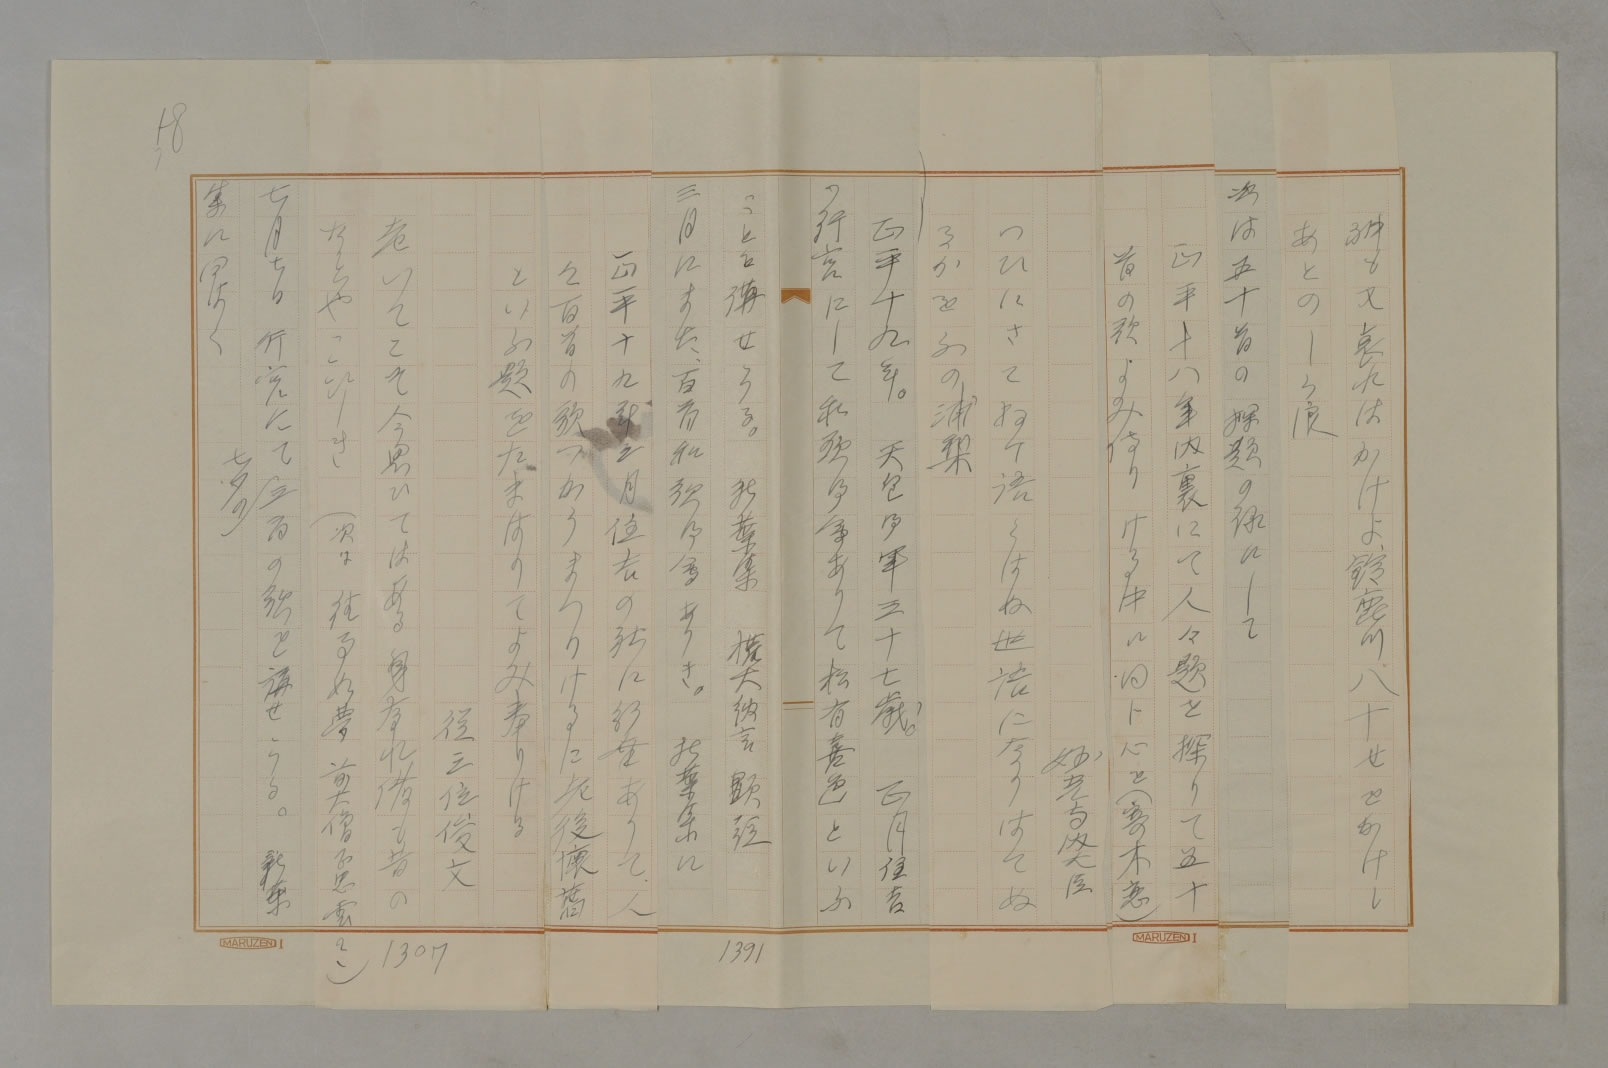 神も又哀れはかけよ鈴鹿川八十せをかけし
あとのしら浪
次は五十首の探題の歌にして
正平十八年内裏にて人々題を探りて五十
首の歌よみ侍りける中に同じ心を(寄木恋)
妙光寺内大臣
つひにさてねず語らはぬ世語になりはてぬ
るかをふの浦梨
正平十九年。天皇御年三十七歳。正月住吉
の行宮にして和歌御会ありて松有喜色といふ
ことを講せらる。新葉集 権大納言顕経
三月にまた、百首和歌御会ありき。新葉集に
正平十九年三月住吉の社に行幸ありて、人
々百首の歌つかうまつりけるに老後懐旧
といふ題をたまはりてよみ奉りける
従三位俊文
老いてこそ今思ひてはある身なれ
昔の
なとやこひしき(次に往事如夢 前大僧正 云々)
七月七日行宮にて 百の歌を講せらる。新葉
集に 七夕の
18
1391
1307
MARUZEN I
MARUZEN I